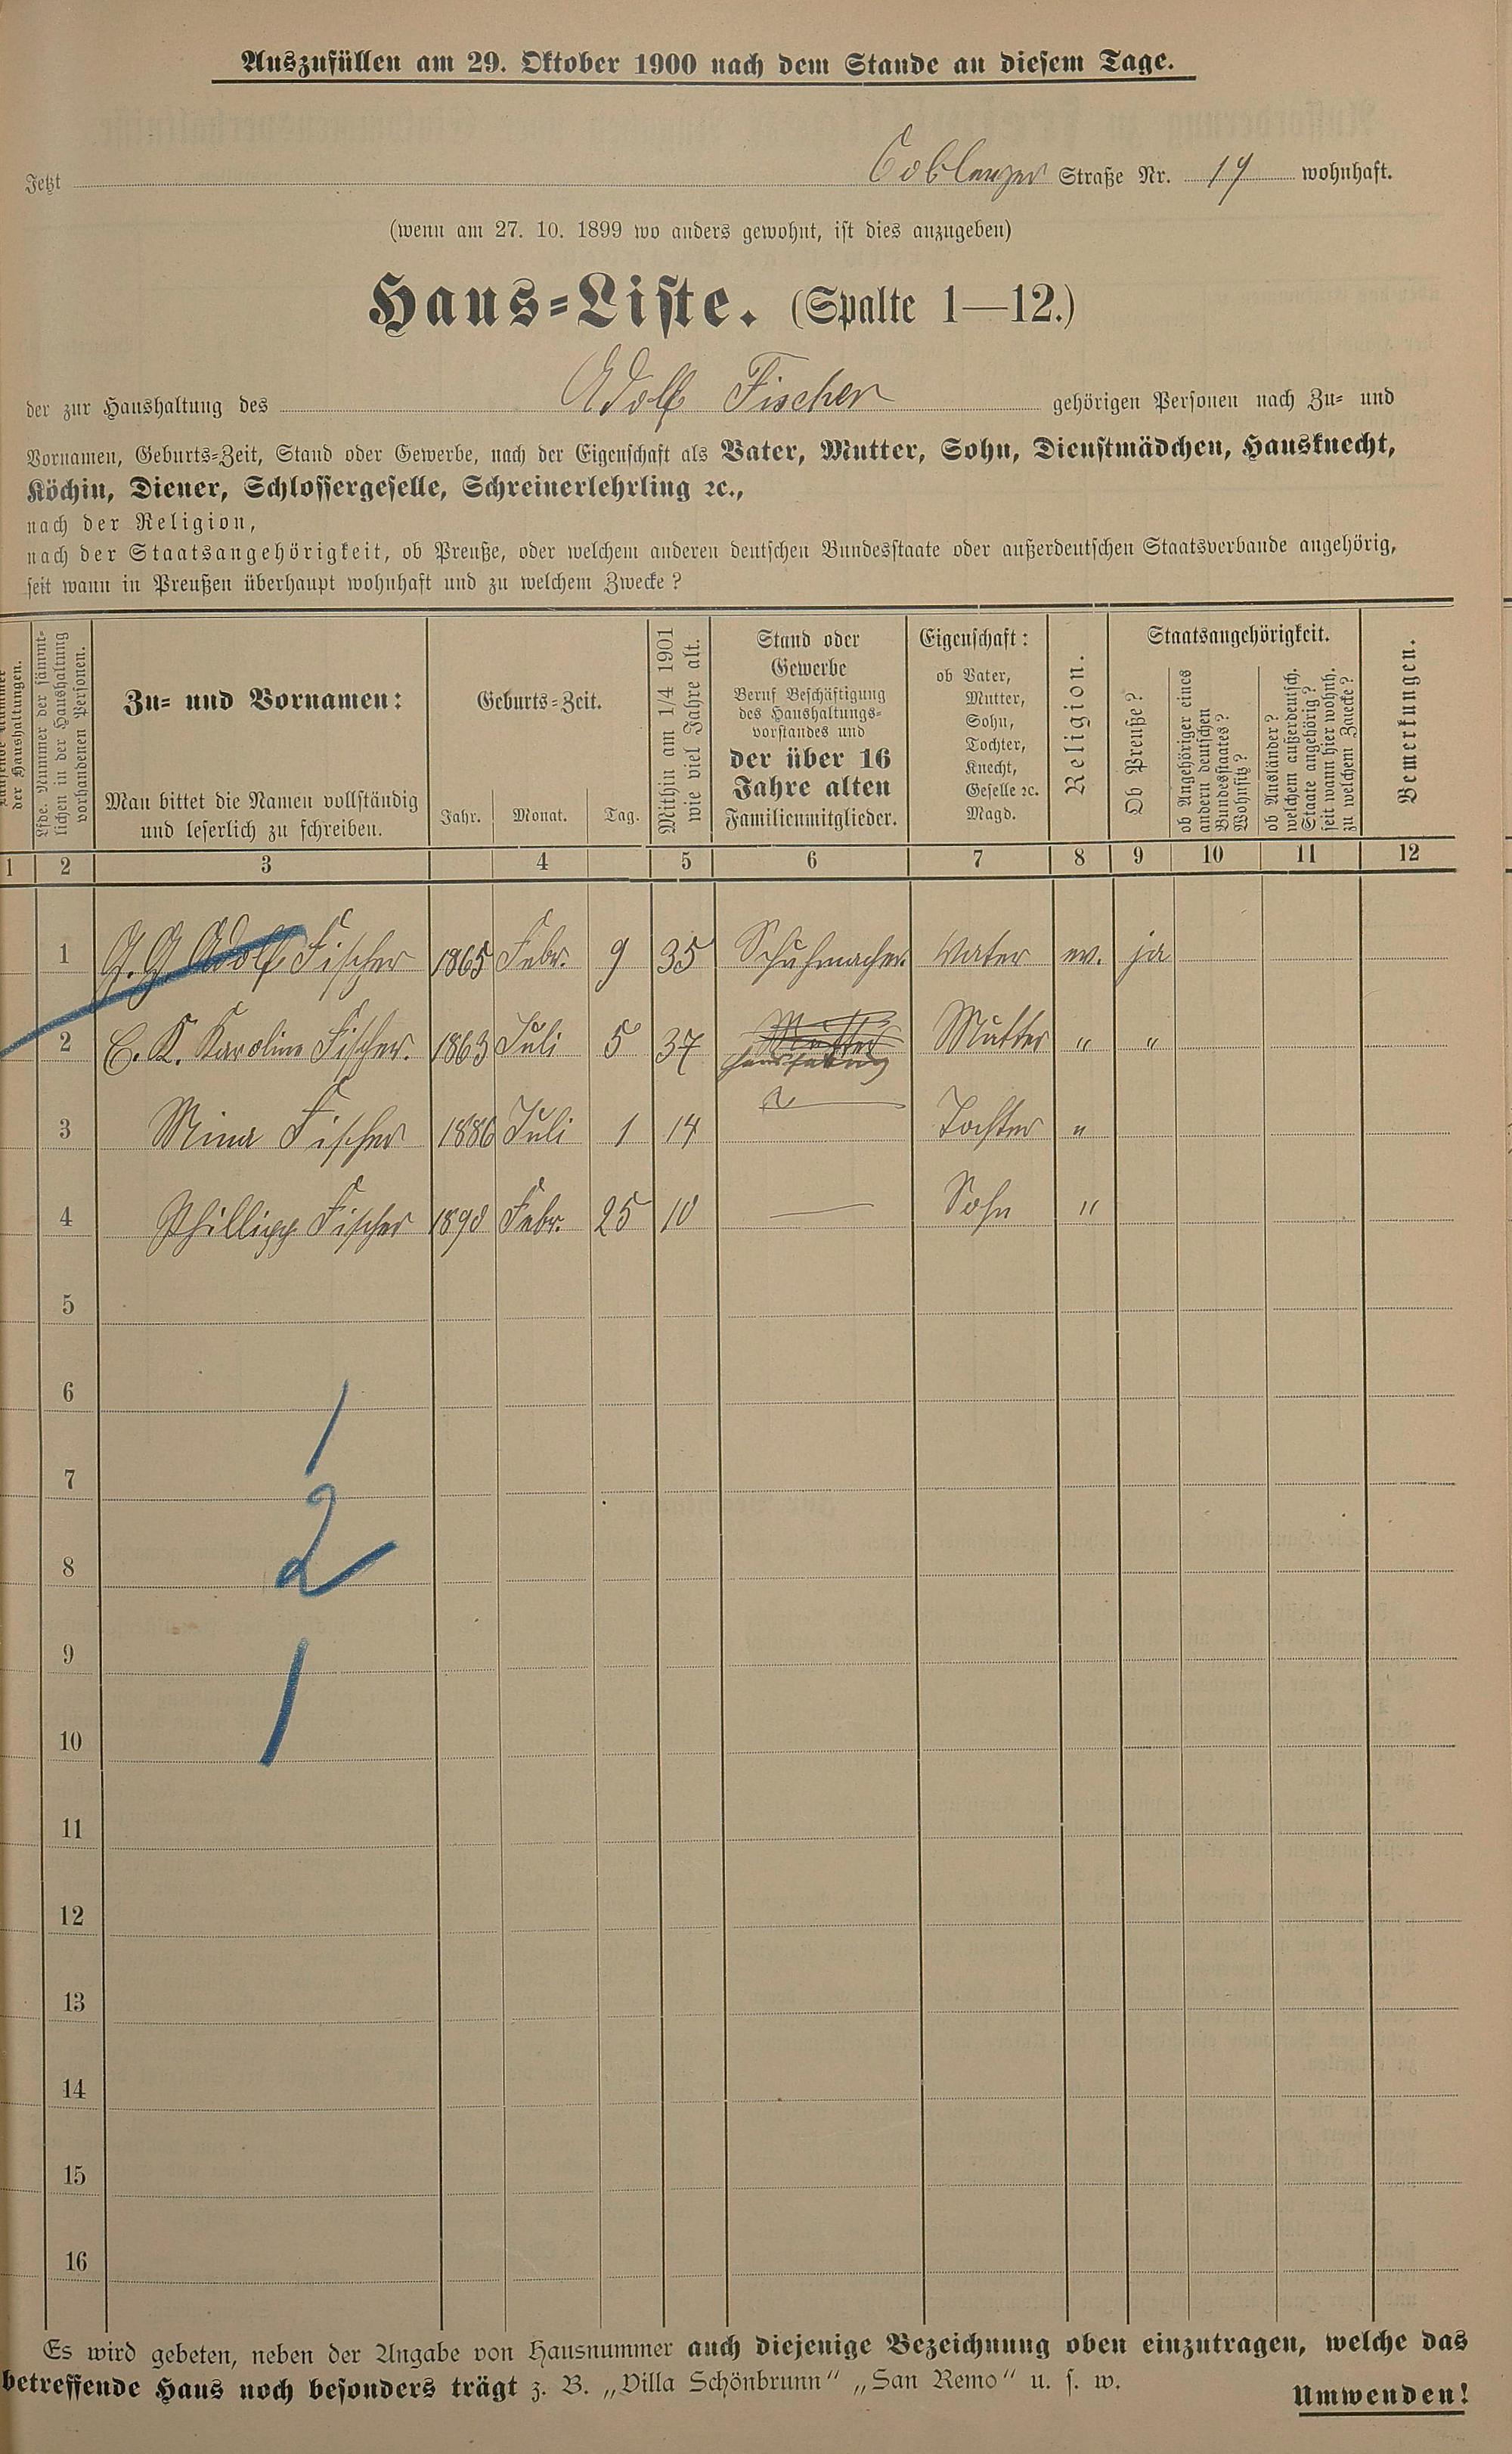 Auszufüllen am 29. Oktober 1900 nach dem Stande an diesem Tage.
Jetzt Coblenzer Straße Nr. 19 wohnhaft.
(wenn am 27. 10. 1899 wo anders gewohnt, ist dies anzugeben)
Haus-Liste. (Spalte 1—12.)
der zur Haushaltung des Adolf Fischer gehörigen Personen nach Zu- und
Vornamen, Geburts-Zeit, Stand oder Gewerbe, nach der Eigenschaft als Vater, Mutter, Sohn, Dienstmädchen, Hausknecht,
Köchin, Diener, Schlossergeselle, Schreinerlehrling ꝛc.,
nach der Religion,
nach der Staatsangehörigkeit, ob Preuße, oder welchem anderen deutschen Bundesstaate oder außerdeutschen Staatsverbande angehörig,
seit wann in Preußen überhaupt wohnhaft und zu welchem Zwecke?
Laufende Nummer
der Haushaltungen.
Lfde. Nummer der sämmt-
lichen in der Haushaltung
vorhandenen Personen.
Zu- und Vornamen:
Man bittet die Namen vollständig
und leserlich zu schreiben.
Geburts-Zeit.
Jahr. Monat. Tag.
Mithin am 1/4 1901
wie viel Jahre alt.
Stand oder
Gewerbe
Beruf Beschäftigung
des Haushaltungs-
vorstandes und
der über 16
Jahre alten
Familienmitglieder.
Eigenschaft:
ob Vater,
Mutter,
Sohn,
Tochter,
Knecht,
Geselle ꝛc.
Magd.
Religion.
Staatsangehörigkeit.
Ob Preuße?
ob Angehöriger eines
andern deutschen
Bundesstaates?
Wohnsitz?
ob Ausländer?
welchem außerdeutsch.
Staate angehörig?
seit wann hier wohnh.
zu welchem Zwecke?
Bemerkungen.
1 2 3 4 5 6 7 8 9 10 11 12
1 G. G. Adolf Fischer 1865 Febr. 9 35 Schuhmacher Vater ev. ja
2 E. K. Karoline Fischer. 1863 Juli 5 37 Mutter Mutter " "
3 Mina Fischer 1886 Juli 1 14 Tochter "
4 Phillipp Fischer 1890 Febr. 25 10 — Sohn "
5
6
1
7
2
8
9
1
10
11
12
13
14
15
16
Es wird gebeten, neben der Angabe von Hausnummer auch diejenige Bezeichnung oben einzutragen, welche das
betreffende Haus noch besonders trägt z. B. „Villa Schönbrunn" „San Remo" u. s. w.
Umwenden!